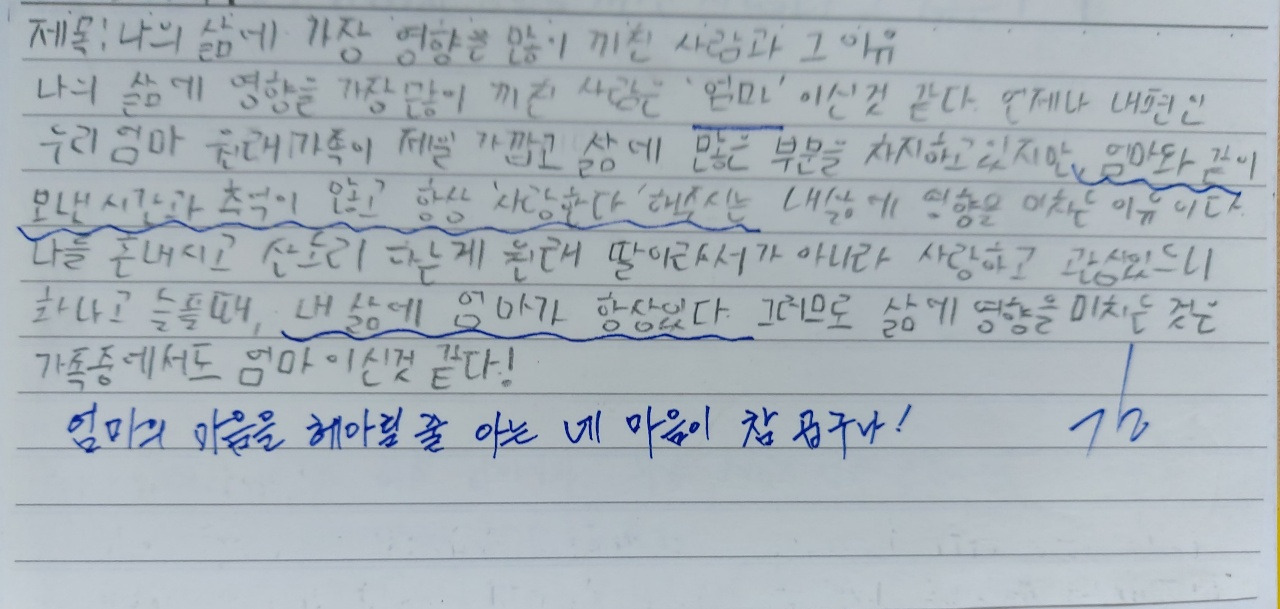 제목: 나의 삶에 가장 영향을 많이 끼친 사람과 그 이유
나의 삶에 영향을 가장 많이 끼친 사람은 '엄마' 이신것 같다. 언제나 내편인
우리 엄마 원래 가족이 제일 가깝고 삶에 많은 부분을 차지하고 있지만, 엄마와 같이
보낸 시간과 추억이 많고 항상 '사랑한다' 해주시는 내삶에 영향을 미치는 이유이다.
나를 혼내시고 잔소리 하는게 원래 딸이라서가 아니라 사랑하고 관심있으니
하나고 느낄때, 내 삶에 엄마가 항상있다. 그러므로 삶에 영향을 미치는 것은
가족중에서도 엄마이신것 같다!
엄마의 마음을 헤아릴 줄 아는 네 마음이 참 곱구나!